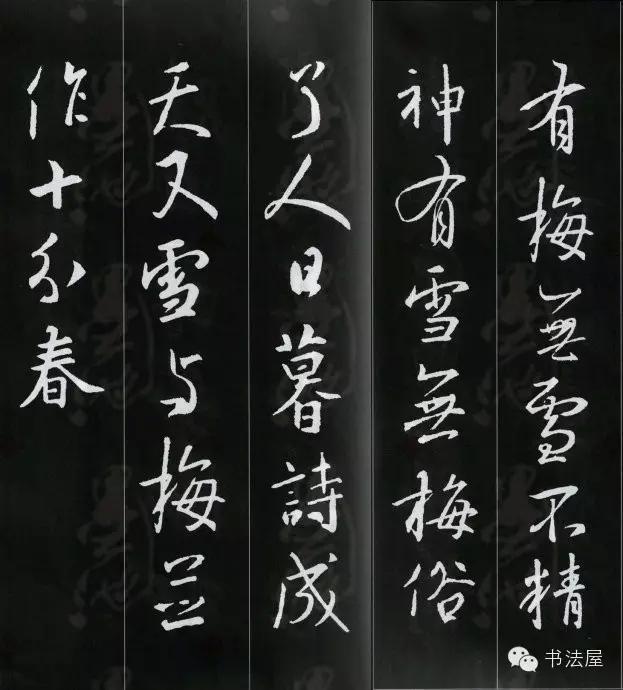 有梅無雪不精
神有雪無梅俗
了人日暮詩成
天又雪与梅並
作十分春
书法屋